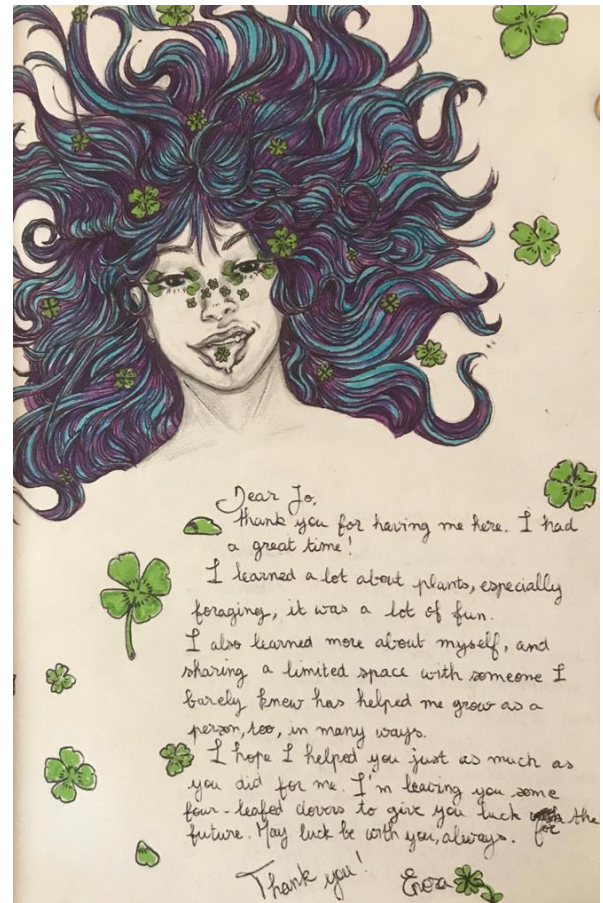 Dear Jo,
thank you for having me here. I had
a great time!
I learned a lot about plants, especially
foraging, it was a lot of fun.
I also learned more about myself, and
sharing a limited space with someone I
barely knew has helped me grow as a
person, too, in many ways.
I hope I helped you just as much as
you did for me. I'm leaving you some
four-leafed clovers to give you luck for the
future. May luck be with you, always.
Thank you!